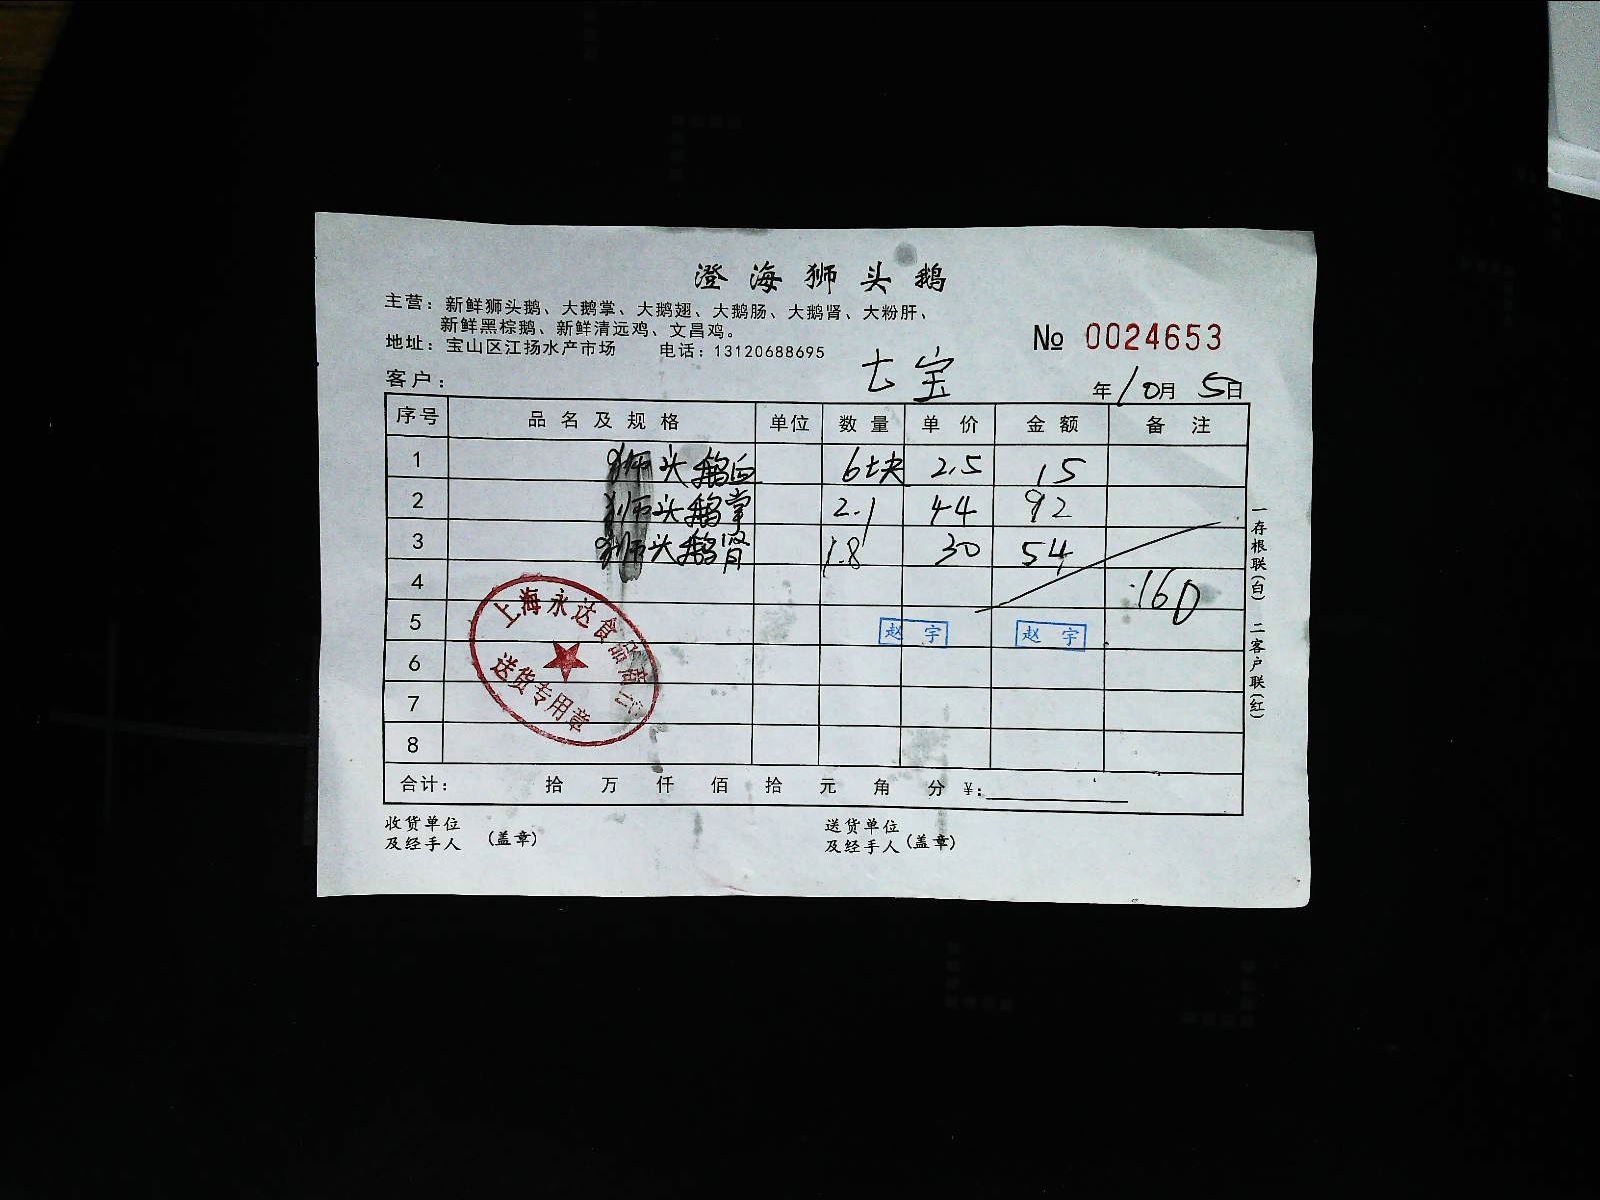 澄海狮头鹅
主营：新鲜狮头鹅、大鹅掌、大鹅翅、大鹅肠、大鹅肾、大粉肝、
新鲜黑棕鹅、新鲜清远鸡、文昌鸡。
地址：宝山区江扬水产市场 电话：13120688695
№ 0024653
客户： 七宝 年10月5日
序号 品名及规格 单位 数量 单价 金额 备注
1 狮头鹅血 6块 2.5 15
2 狮头鹅掌 2.1 44 92
3 狮头鹅肾 1.8 30 54
4 160
5 赵宇 赵宇
6
7
8
上海永达食品
送货专用章
合计： 拾 万 仟 佰 拾 元 角 分 ¥：
收货单位
及经手人 (盖章)
送货单位
及经手人 (盖章)
一存根联(白) 二客户联(红)